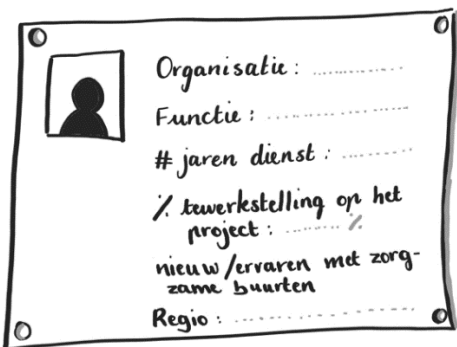 Organisatie: ............
Functie: ....................
# jaren dienst: ..........
% tewerkstelling op het
project: ........ %
nieuw/ervaren met zorg-
zame buurten
Regio: ....................